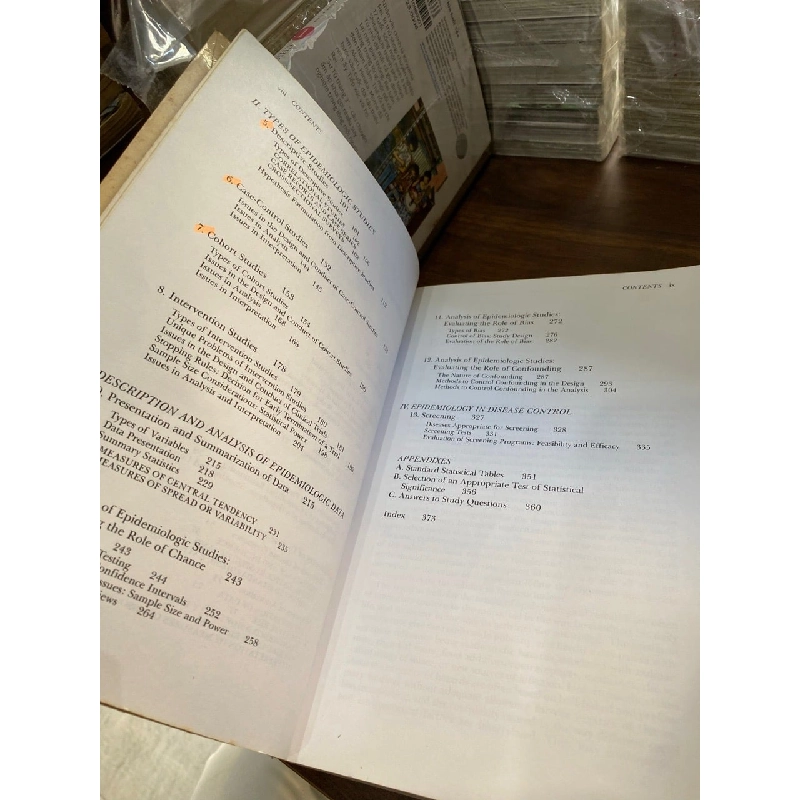 CONTENTS
II. TYPES OF EPIDEMIOLOGIC STUDIES
5. Descriptive Studies
Types of Descriptive Studies
CORRELATIONAL STUDIES
CROSS-SECTIONAL SURVEYS
Hypothesis Formulation from Descriptive Studies
6. Case-Control Studies 132
Issues in the Design and Conduct of Case-Control Studies
Issues in Analysis
Issues in Interpretation
7. Cohort Studies 153
Types of Cohort Studies 154
Issues in the Design and Conduct of Cohort Studies
Issues in Analysis 168
Issues in Interpretation
8. Intervention Studies 178
Types of Intervention Studies 179
Unique Problems of Intervention Studies
Issues in the Design and Conduct of Clinical Trials
Stopping Rules: Decision for Early Termination of a Trial
Sample Size Considerations: Statistical Power
Issues in Analysis and Interpretation 201
DESCRIPTION AND ANALYSIS OF EPIDEMIOLOGIC DATA
Presentation and Summarization of Data 215
Types of Variables 215
Data Presentation 218
Summary Statistics 229
MEASURES OF CENTRAL TENDENCY 231
MEASURES OF SPREAD OR VARIABILITY 235
of Epidemiologic Studies:
the Role of Chance 243
243
Testing 244
onfidence Intervals 252
ssues: Sample Size and Power 258
iews 264
CONTENTS ix
11. Analysis of Epidemiologic Studies:
Evaluating the Role of Bias 272
Types of Bias 272
Control of Bias: Study Design 276
Evaluation of the Role of Bias 282
12. Analysis of Epidemiologic Studies:
Evaluating the Role of Confounding 287
The Nature of Confounding 287
Methods to Control Confounding in the Design 293
Methods to Control Confounding in the Analysis 304
IV. EPIDEMIOLOGY IN DISEASE CONTROL
13. Screening 327
Diseases Appropriate for Screening 328
Screening Tests 331
Evaluation of Screening Programs: Feasibility and Efficacy 335
APPENDIXES
A. Standard Statistical Tables 351
B. Selection of an Appropriate Test of Statistical
Significance 356
C. Answers to Study Questions 360
Index 375